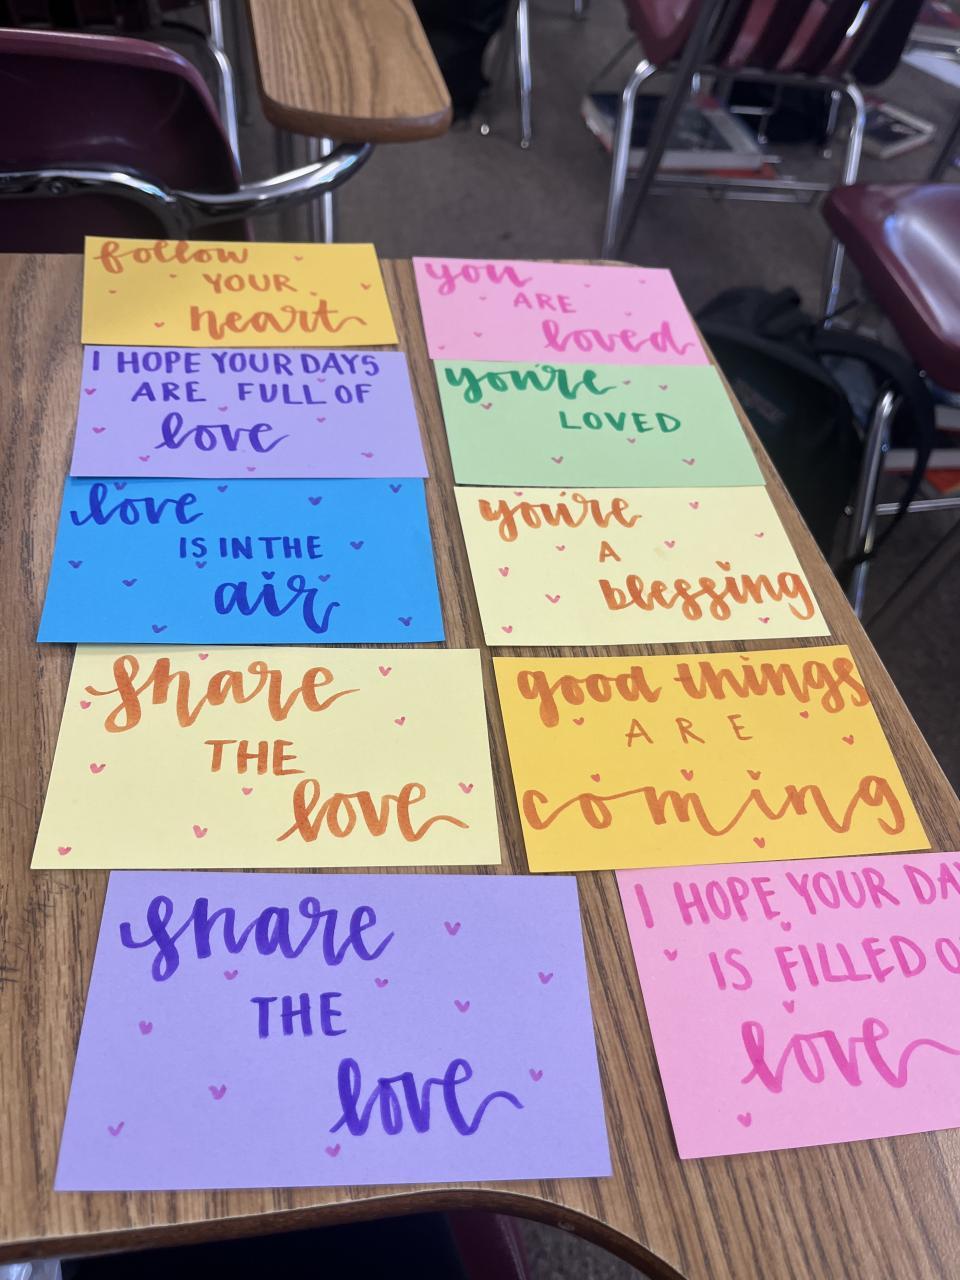 follow
YOUR
heart
I HOPE YOUR DAYS
ARE FULL OF
love
love
IS IN THE
air
share
THE
love
share
THE
love
you
ARE
loved
you're
LOVED
you're
A
blessing
good things
ARE
coming
I HOPE YOUR
IS FILLED
love